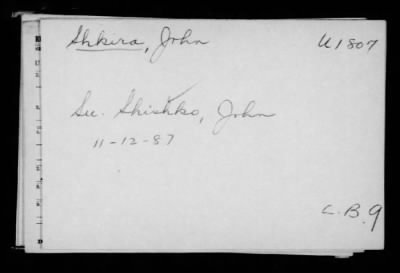 Shkira, John U1807
See. Shishko, John
11-12-87
L.B.9